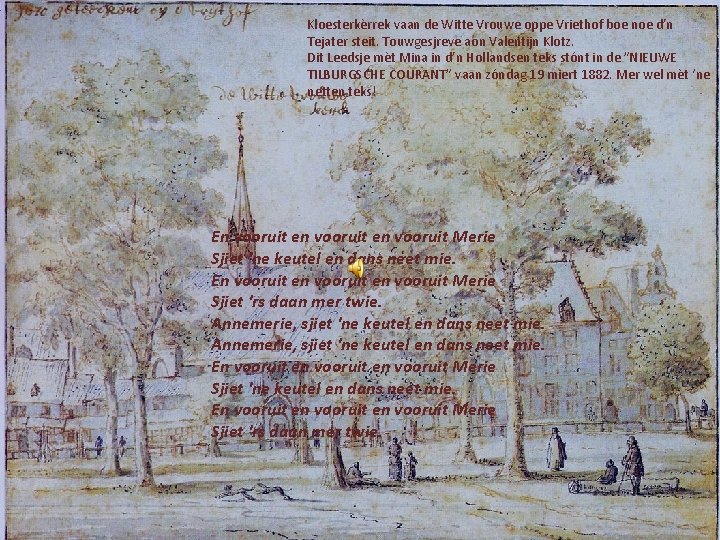 Kloesterkèrrek vaan de Witte Vrouwe oppe Vriethof boe noe d’n
Tejater steit. Touwgesjreve aon Valentijn Klotz.
Dit Leedsje mèt Mina in d’n Hollandsen teks stónt in de “NIEUWE
TILBURGSCHE COURANT” vaan zóndag 19 miert 1882. Mer wel mèt ’ne
nètten teks!
de Witte
kerck
En vooruit en vooruit en vooruit Merie
Sjiet ’ne keutel en dans neet mie.
En vooruit en vooruit en vooruit Merie
Sjiet ’rs daan mer twie.
Annemerie, sjiet ’ne keutel en dans neet mie.
Annemerie, sjiet ’ne keutel en dans neet mie.
En vooruit en vooruit en vooruit Merie
Sjiet ’ne keutel en dans neet mie.
En vooruit en vooruit en vooruit Merie
Sjiet ’rs daan mer twie.